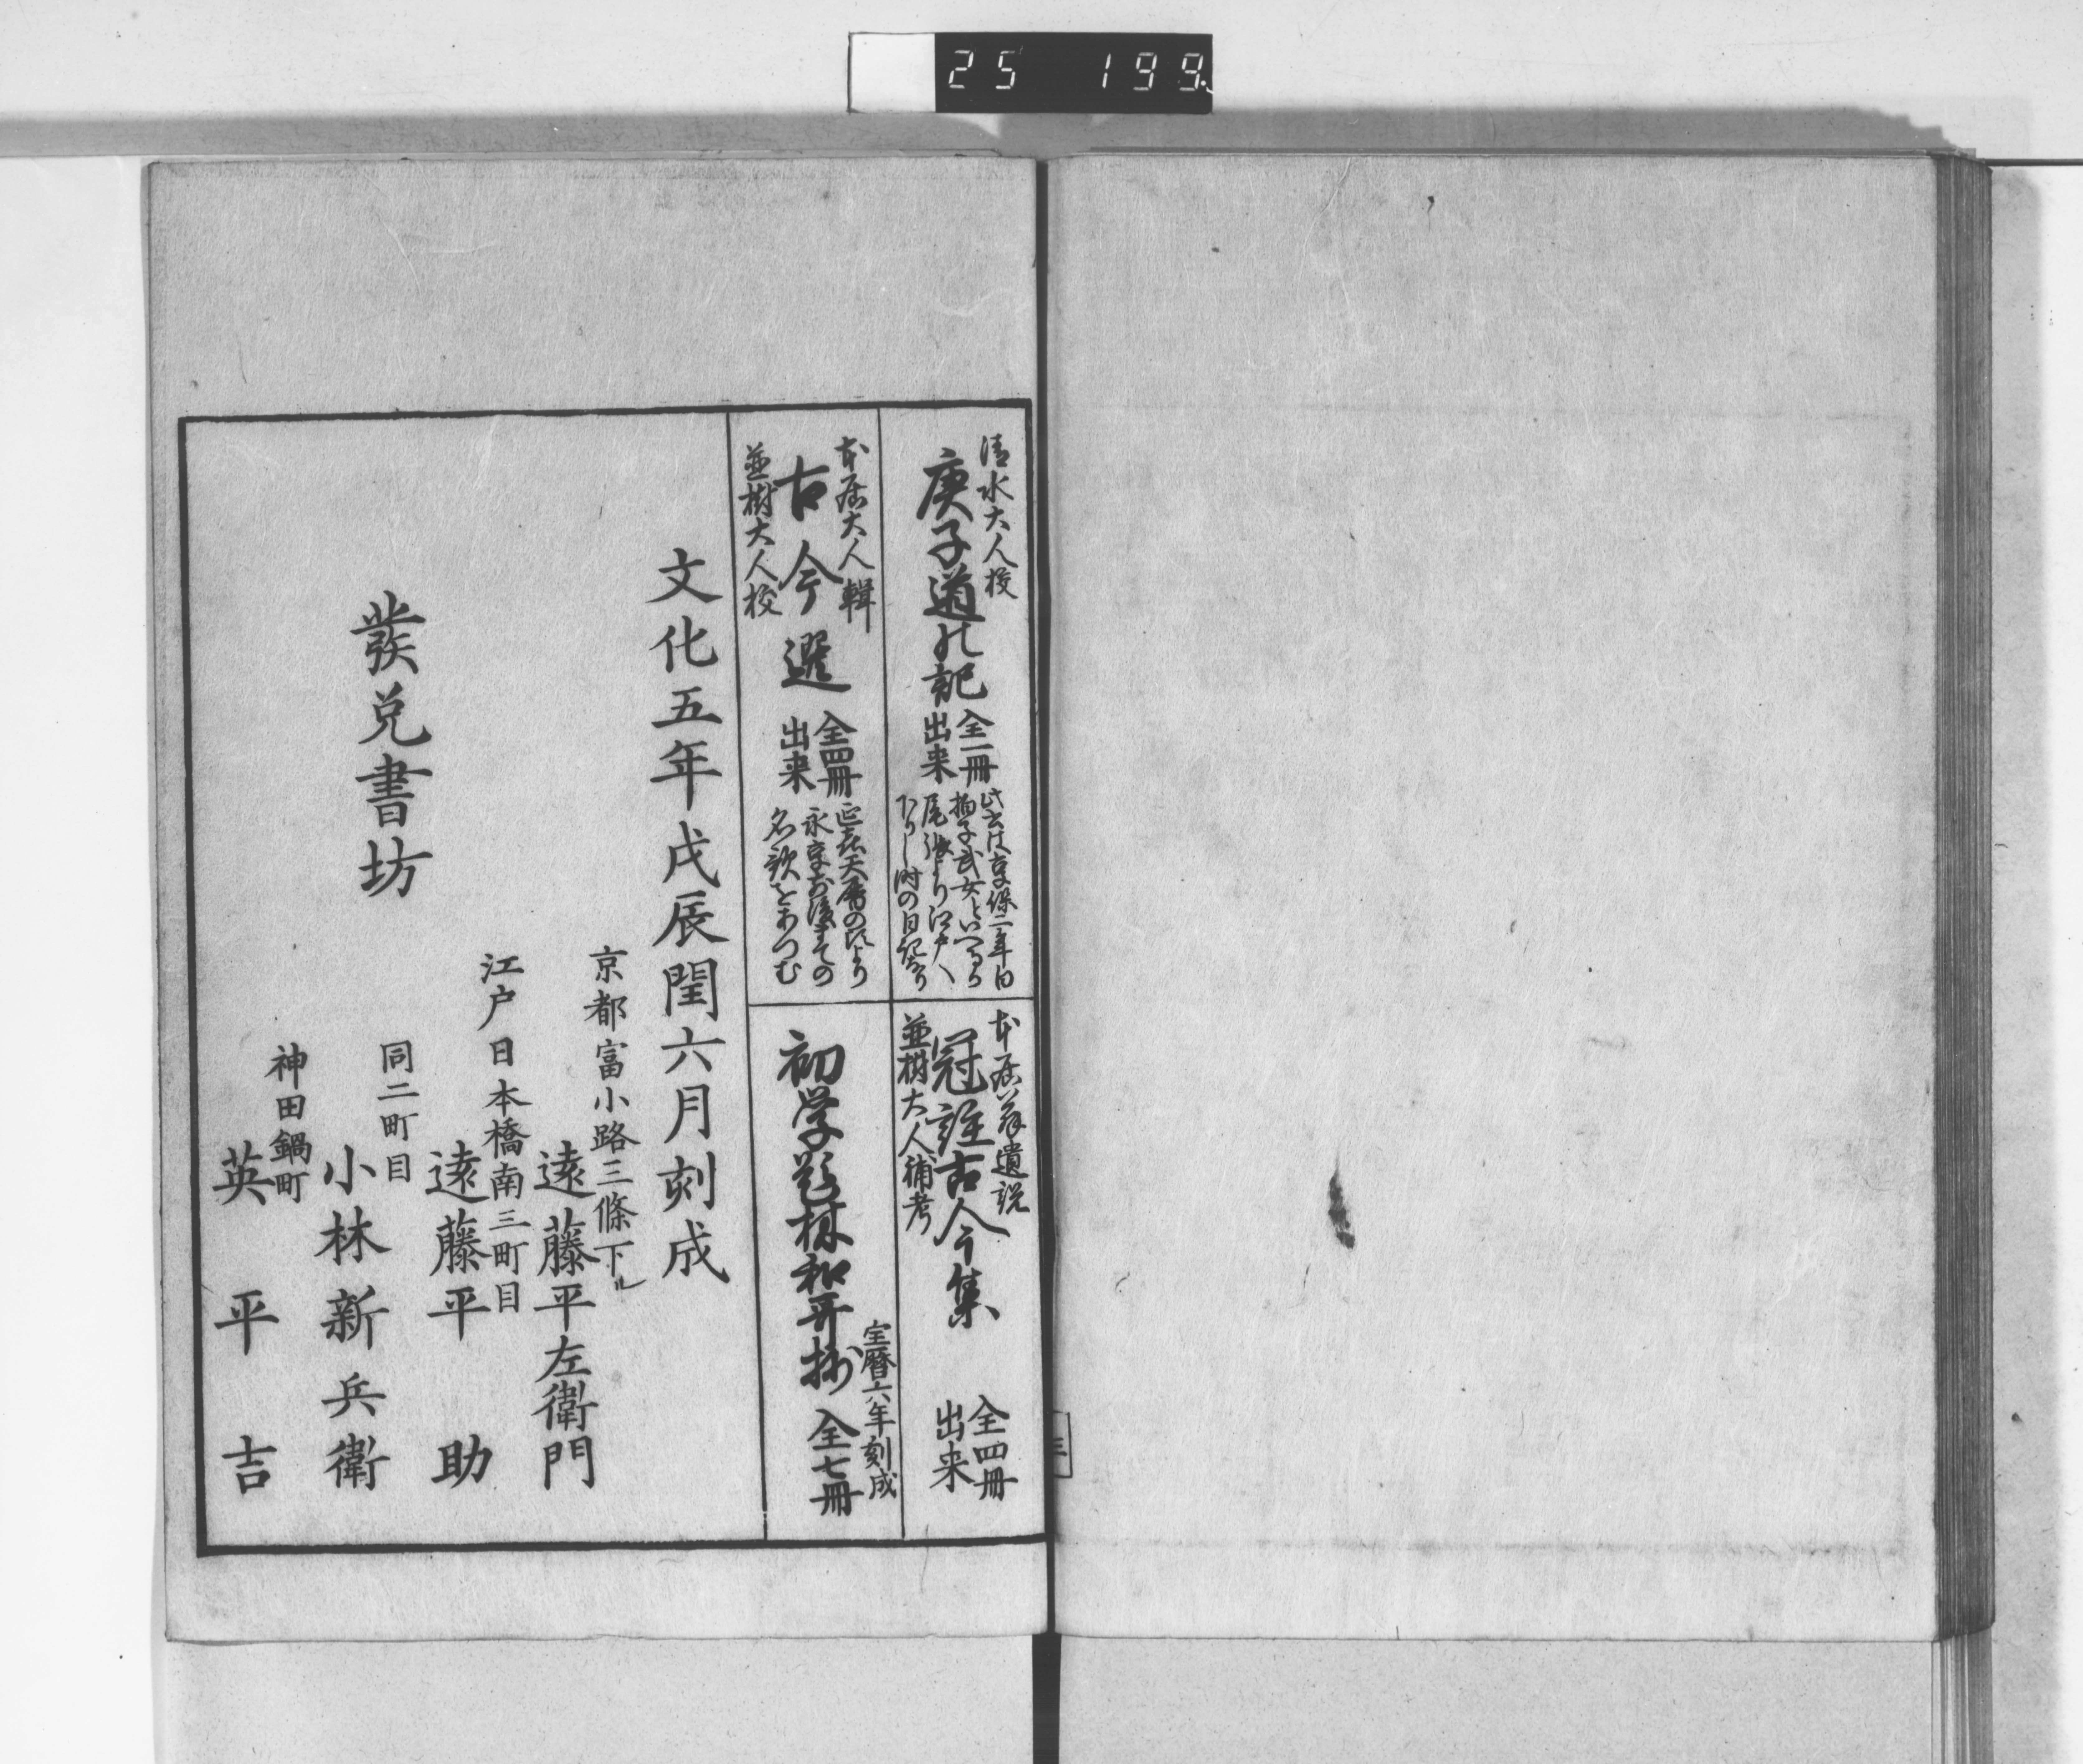 25 199
清水大人校
庚子道の記
全一冊
出来
此書は享保二年白
拍子武女といへるか
尾張より江戸へ
下りし時の日記なり
本居翁遺説
冠註古今集
並樹大人補考
全四冊
出来
本居大人輯
古今選
並樹大人校
全四冊
出来
延喜天暦の頃より
永享前後までの
名歌をあつむ
宝暦六年刻成
初学題林和哥抄 全七冊
文化五年戊辰閏六月刻成
京都富小路三條下ル
遠藤平左衛門
江戸日本橋南三町目
遠藤平助
發兌書坊
同二町目
小林新兵衛
神田鍋町
英平吉